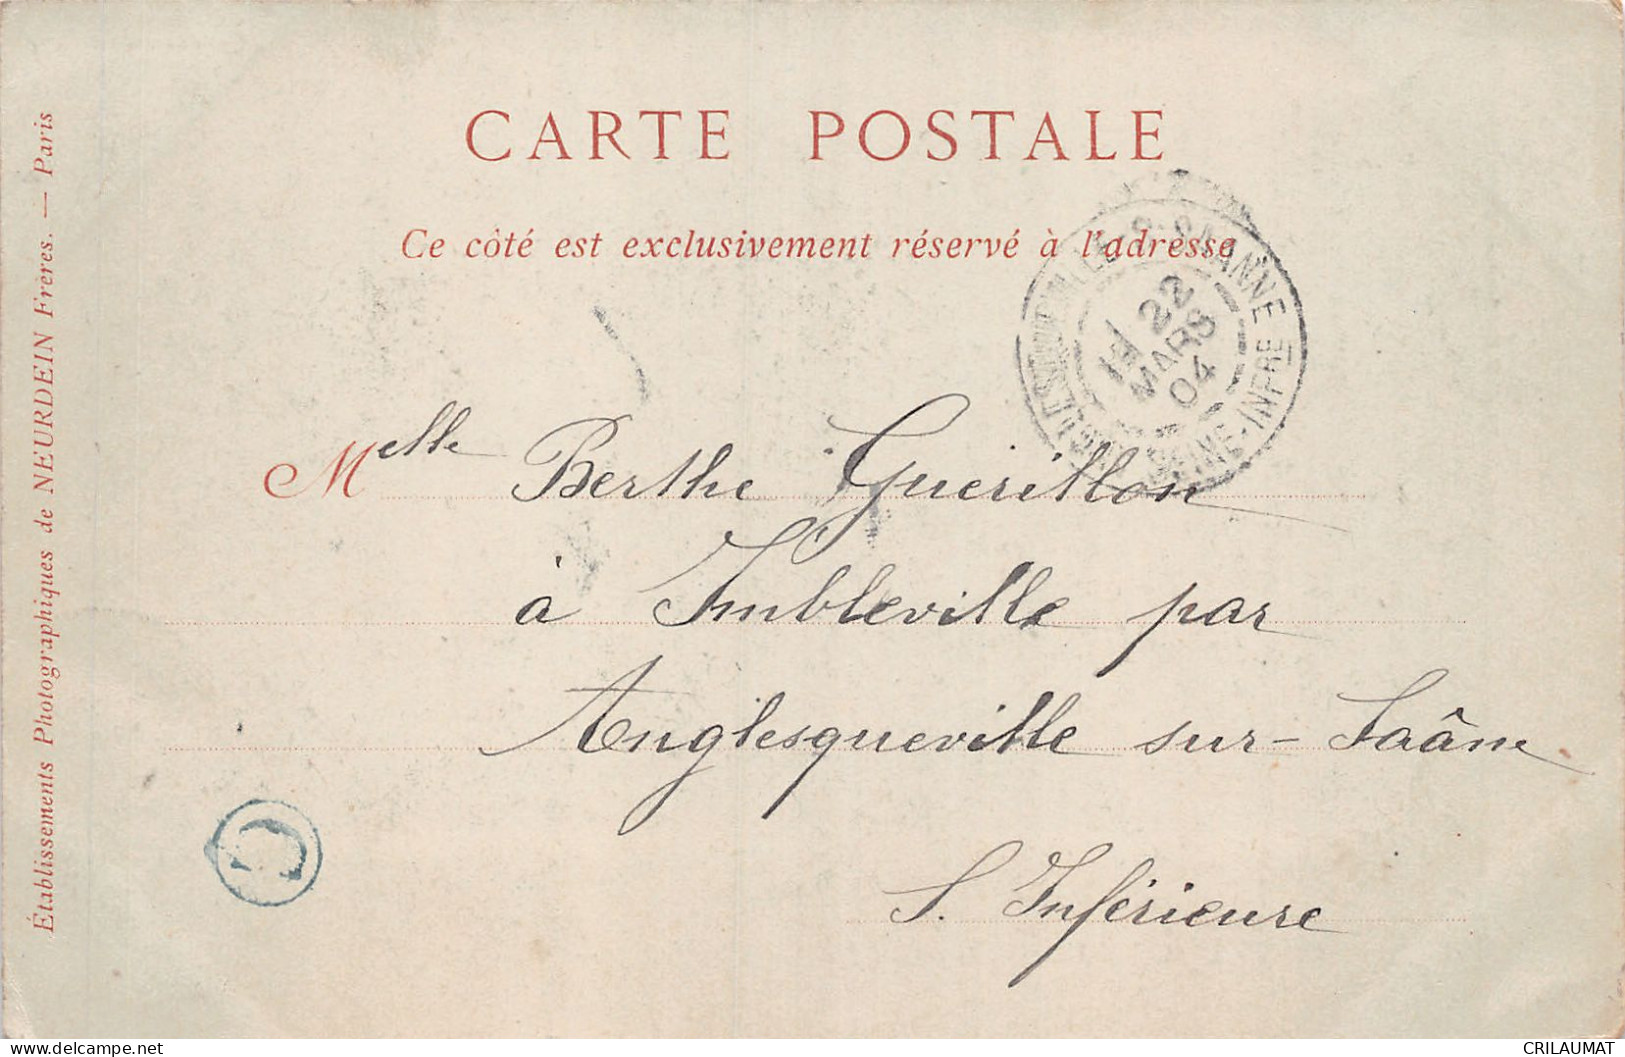 CARTE POSTALE
Ce côté est exclusivement réservé à l'adresse
Établissements Photographiques de NEURDEIN Frères. — Paris
22
MARS
04
SEINE-INFRE
Melle Berthe Guerillon
à Imbleville par
Anglesqueville sur-Saâne
S. Inférieure
C
delcampe.net
CRILAUMAT